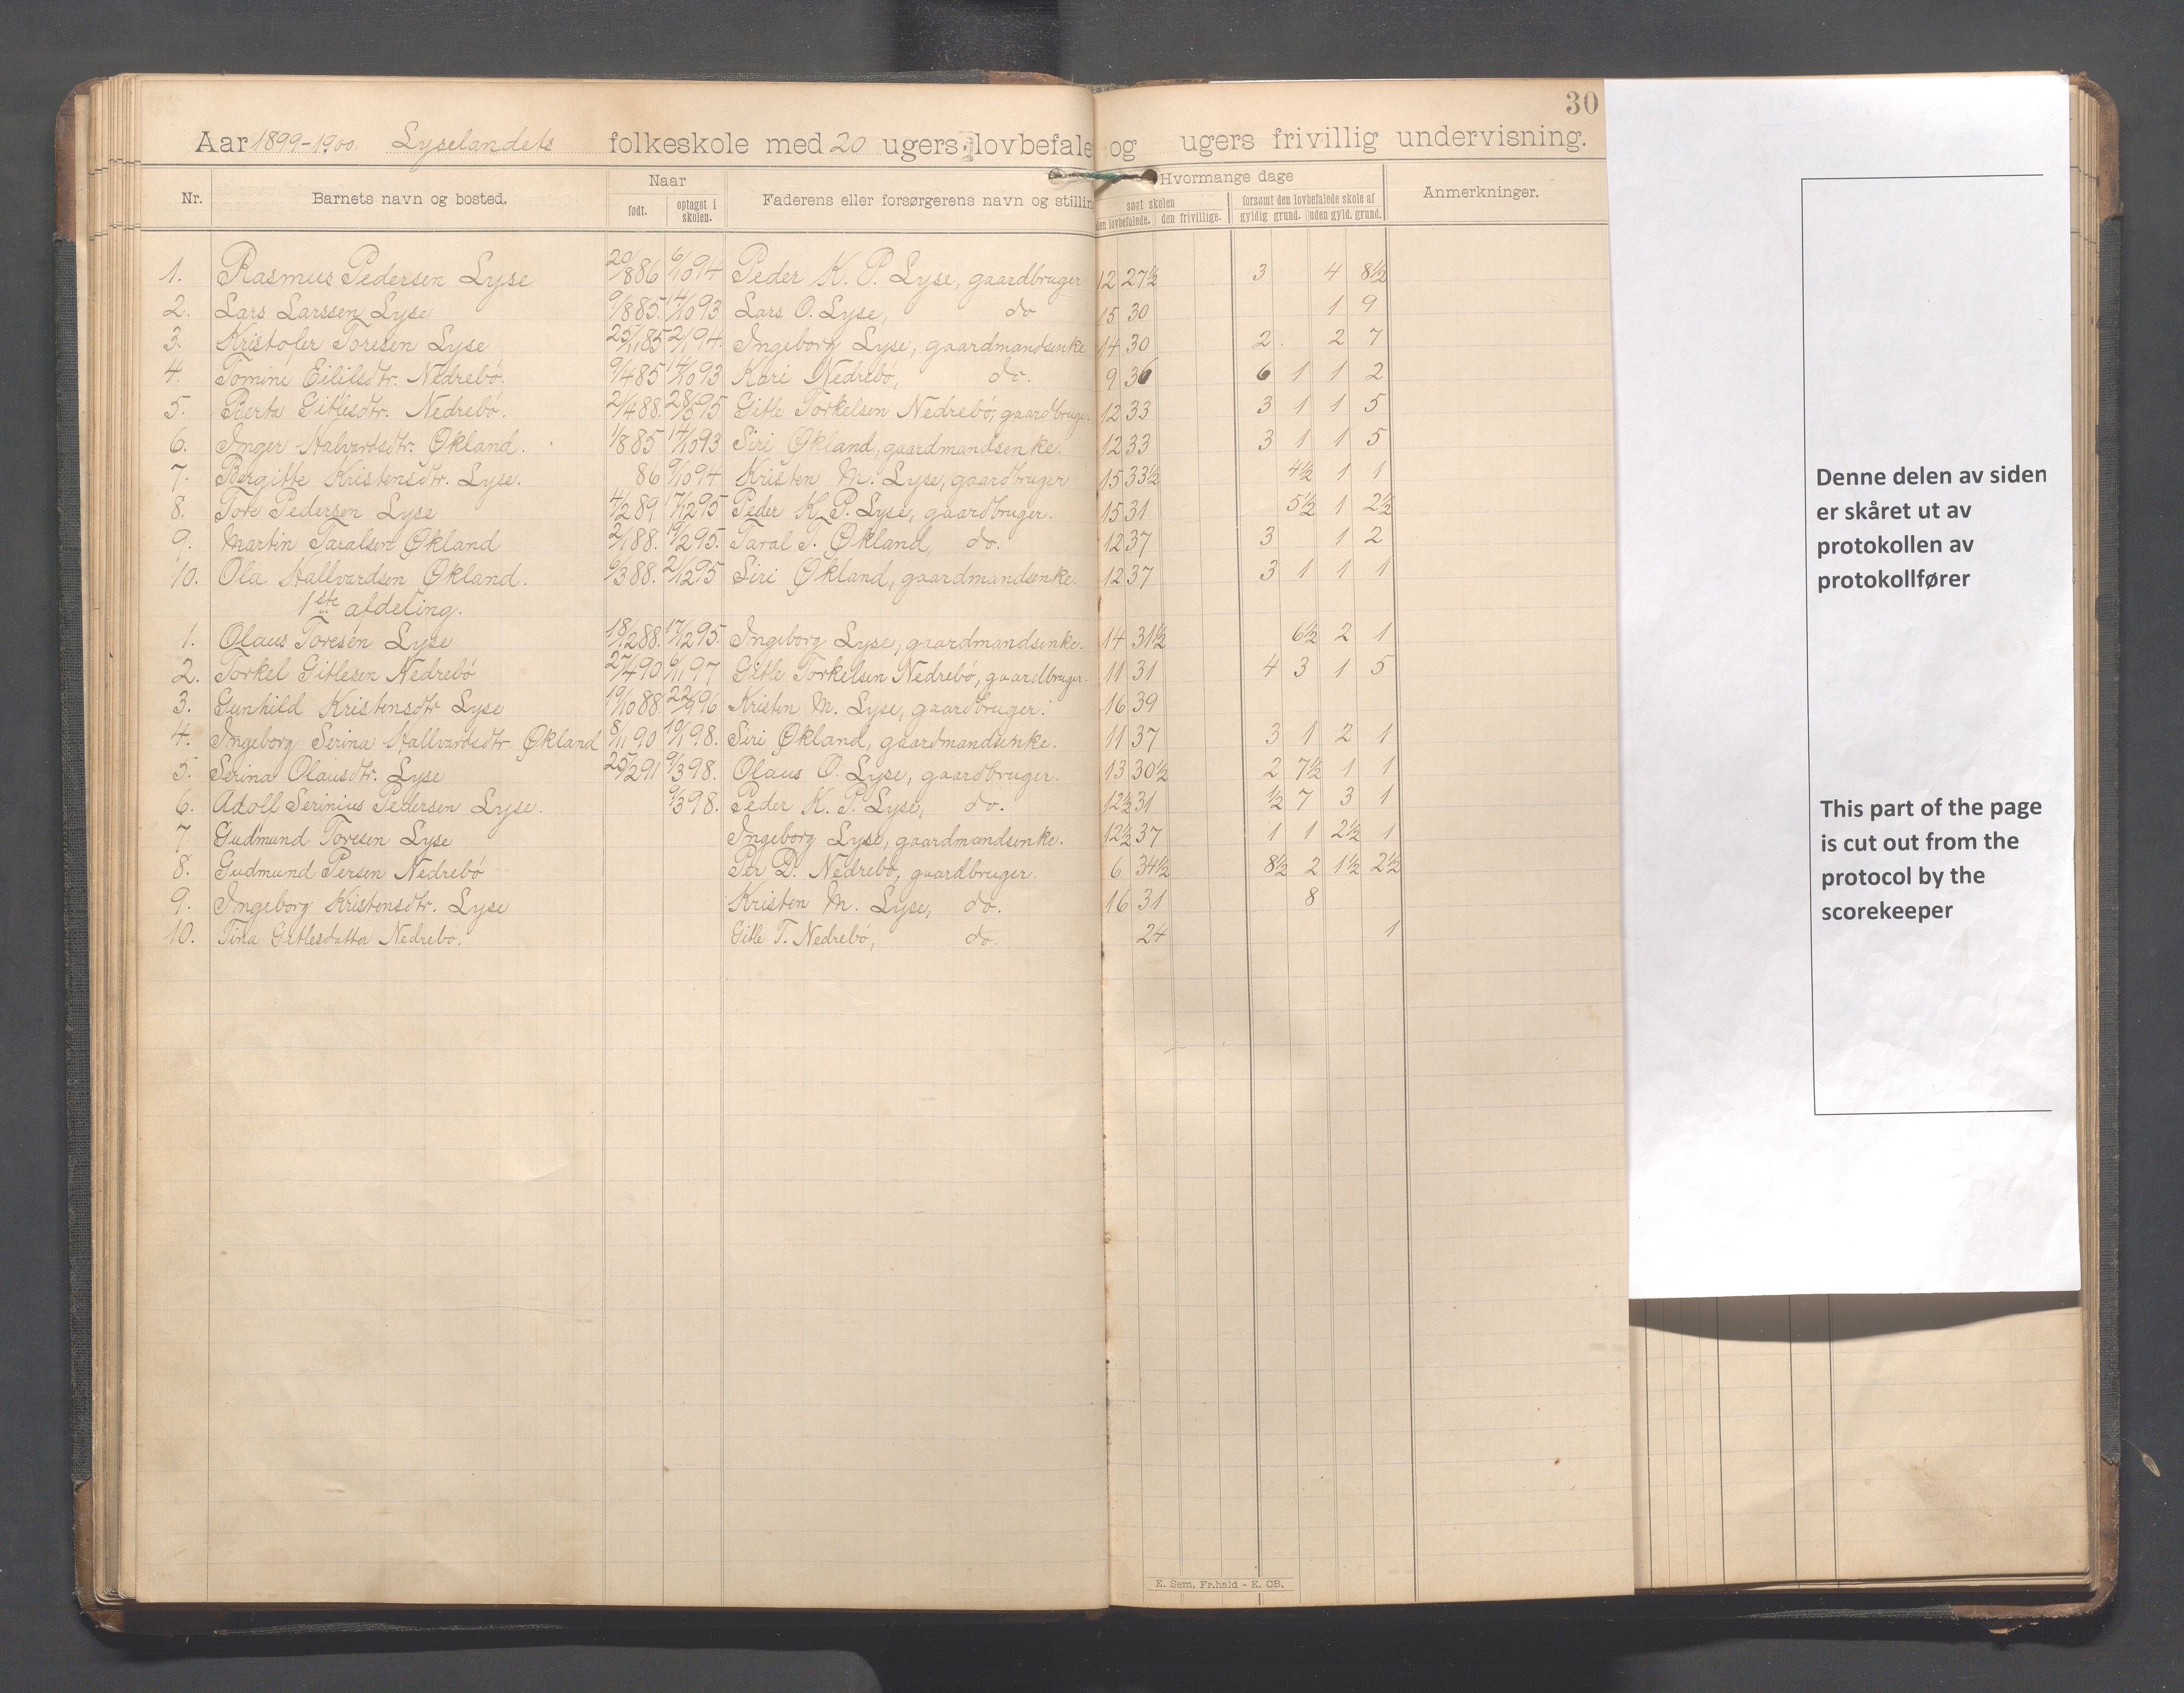 30
Aar 1899-1900. Lyselandets folkeskole med 20 ugers lovbefale og ugers frivillig undervisning.
Nr. Barnets navn og bosted. Naar født. optaget i skolen. Faderens eller forsørgerens navn og stillin Hvormange dage søgt skolen den lovbefalede. den frivillige. forsømt den lovbefalede skole af gyldig grund. uden gyld. grund. Anmerkninger.
1. Rasmus Pedersen Lyse 20/8 86 6/10 94 Peder K. P. Lyse, gaardbruger 12 27½ 3 4 8½
2. Lars Larssen Lyse 9/8 85. 14/10 93 Lars O. Lyse, do 15 30 1 9
3. Kristofer Toresen Lyse 25/1 85 2/1 94. Ingeborg Lyse, gaardmandsenke 14 30 2. 2 7
4. Tomine Eililsdtr. Nedrebö. 9/4 85 14/10 93 Kari Nedrebö, do. 9 36 6 1 1 2
5. Berta Gitlesdtr. Nedrebö. 2/4 88. 28/5 95 Gitle Torkelsen Nedrebö, gaardbruger 12 33 3 1 1 5
6. Inger Halvardsdtr. Økland. 1/8 85 14/10 93 Siri Økland, gaardmandsenke. 12 33 3 1 1 5
7. Bergitte Kristensdtr. Lyse. 86 9/10 94 Kristen M. Lyse, gaardbruger 15 33½ 4½ 1 1
8. Tore Pedersen Lyse 4/2 89 17/12 95 Peder K. P. Lyse, gaardbruger. 15 31 5½ 1 2½
9. Martin Taralsen Økland 2/1 88. 19/2 95. Taral T. Økland, do. 12 37 3 1 2
10. Ola Hallvardsen Økland. 6/3 88. 2/12 95 Siri Økland, gaardmandsenke. 12 37 3 1 1 1
1ste afdeling.
1. Olaus Toresen Lyse 18/12 88. 17/12 95. Ingeborg Lyse, gaardmandsenke. 14 31½ 6½ 2 1
2. Torkel Gitlesen Nedrebö 27/4 90 6/1 97 Gitle Torkelsen Nedrebö, gaardbruger. 11 31 4 3 1 5
3. Gunhild Kristensdtr Lyse 19/10 88. 22/9 96 Kristen M. Lyse, gaardbruger. 16 39
4. Ingeborg Serina Hallvardsdtr Økland 8/11 90 10/1 98. Siri Økland, gaardmandsenke. 11 37 3 1 2 1
5. Serina Olausdtr. Lyse 25/2 91 9/3 98. Olaus O. Lyse, gaardbruger. 13 30½ 2 7½ 1 1
6. Adolf Serinius Pedersen Lyse. 9/3 98. Peder K. P. Lyse, do. 12½ 31 ½ 7 3 1
7. Gudmund Toresen Lyse Ingeborg Lyse, gaardmandsenke. 12½ 37 1 1 2½ 1
8. Gudmund Persen Nedrebö Per D. Nedrebö, gaardbruger. 6 34½ 8½ 2 1½ 2½
9. Ingeborg Kristensdtr. Lyse Kristen M. Lyse, do. 16 31 8
10. Tina Gitlesdatter Nedrebö. Gitle T. Nedrebö, do. 24 1
E. Sem, Fr.hald - E. CB.
Denne delen av siden
er skåret ut av
protokollen av
protokollfører
This part of the page
is cut out from the
protocol by the
scorekeeper